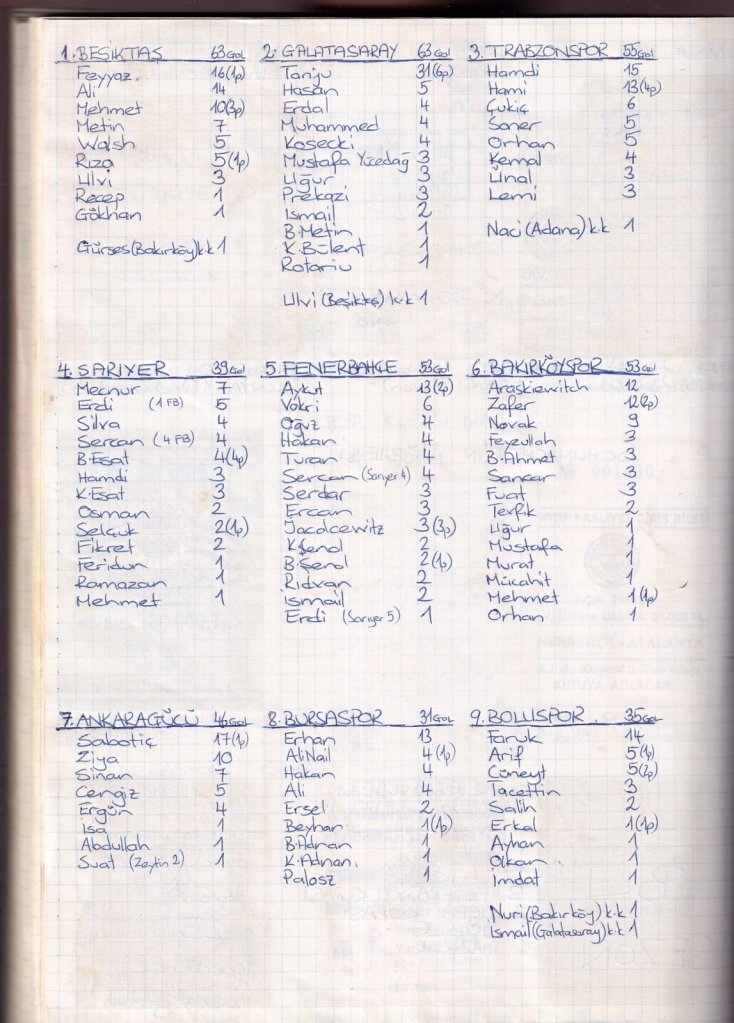 1. BEŞİKTAŞ 63 Gol
Feyyaz. 16(1p)
Ali 14
Mehmet 10(3p)
Metin 7
Walsh 5
Rıza 5(1p)
Ulvi 3
Recep 1
Gökhan 1
Gürses (Bakırköy) k.k 1
2. GALATASARAY 63 Gol
Tanju 31(6p)
Hasan 5
Erdal 4
Muhammed 4
Kosecki 4
Mustafa Yücedağ 3
Uğur 3
Prekazi 3
İsmail 2
B.Metin 1
K.Bülent 1
Rotariu 1
Ulvi (Beşiktaş) k.k 1
3. TRABZONSPOR 55 Gol
Hamdi 15
Hami 13(4p)
Çukiç 6
Soner 5
Orhan 5
Kemal 4
Ünal 3
Lemi 3
Naci (Adana) k.k 1
4. SARIYER 39 Gol
Mecnur 7
Erdi (1 FB) 5
Silva 4
Sercan (4 FB) 4
B.Esat 4(4p)
Hamdi 3
K.Esat 3
Osman 2
Selçuk 2(1p)
Fikret 2
Feridun 1
Ramazan 1
Mehmet 1
5. FENERBAHÇE 53 Gol
Aykut 13(2p)
Vokri 6
Oğuz 4
Hakan 4
Turan 4
Sercan (Sarıyer 4) 4
Serdar 3
Ercan 3
Jacolcewitz 3(3p)
K.Şenol 2
B.Şenol 2(1p)
Rıdvan 2
İsmail 2
Erdi (Sarıyer 5) 1
6. BAKIRKÖYSPOR 53 Gol
Araşkiewitch 12
Zafer 12(2p)
Novak 9
Feyzullah 3
B.Ahmet 3
Sancar 3
Fuat 3
Tevfik 2
Uğur 1
Mustafa 1
Murat 1
Mücahit 1
Mehmet 1(1p)
Orhan 1
7. ANKARAGÜCÜ 46 Gol
Sabotiç 17(1p)
Ziya 10
Sinan 7
Cengiz 5
Ergün 4
İsa 1
Abdullah 1
Suat (Zeytin 2) 1
8. BURSASPOR 31 Gol
Erhan 13
Ali Nail 4(1p)
Hakan 4
Ali 4
Ersel 2
Beyhan 1(1p)
B.Adnan 1
K.Adnan. 1
Palasz 1
9. BOLUSPOR. 35 Gol
Faruk 14
Arif 5(1p)
Cüneyt 5(2p)
Tacettin 3
Salih 2
Erkal 1(1p)
Ayhan 1
Olkan 1
İmdat 1
Nuri (Bakırköy) k.k 1
İsmail (Galatasaray) k.k 1